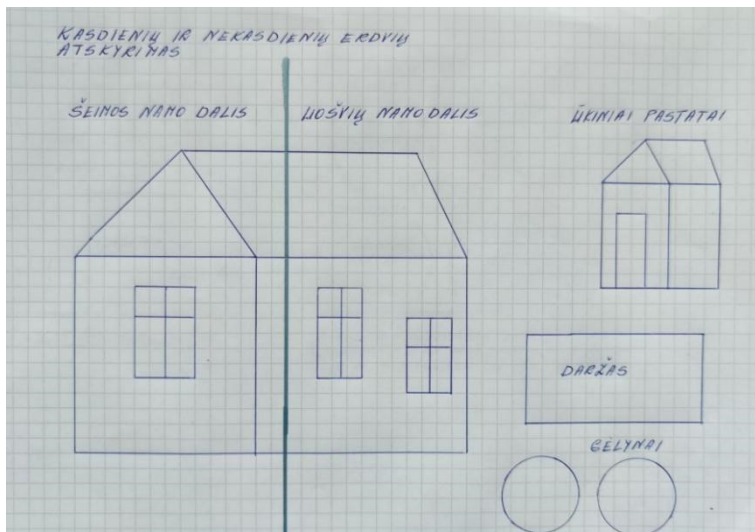 KASDIENIŲ IR NEKASDIENIŲ ERDVIŲ
ATSKYRIMAS
ŠEIMOS NAMO DALIS
UOŠVIŲ NAMO DALIS
ŪKINIAI PASTATAI
DARŽAS
GĖLYNAI